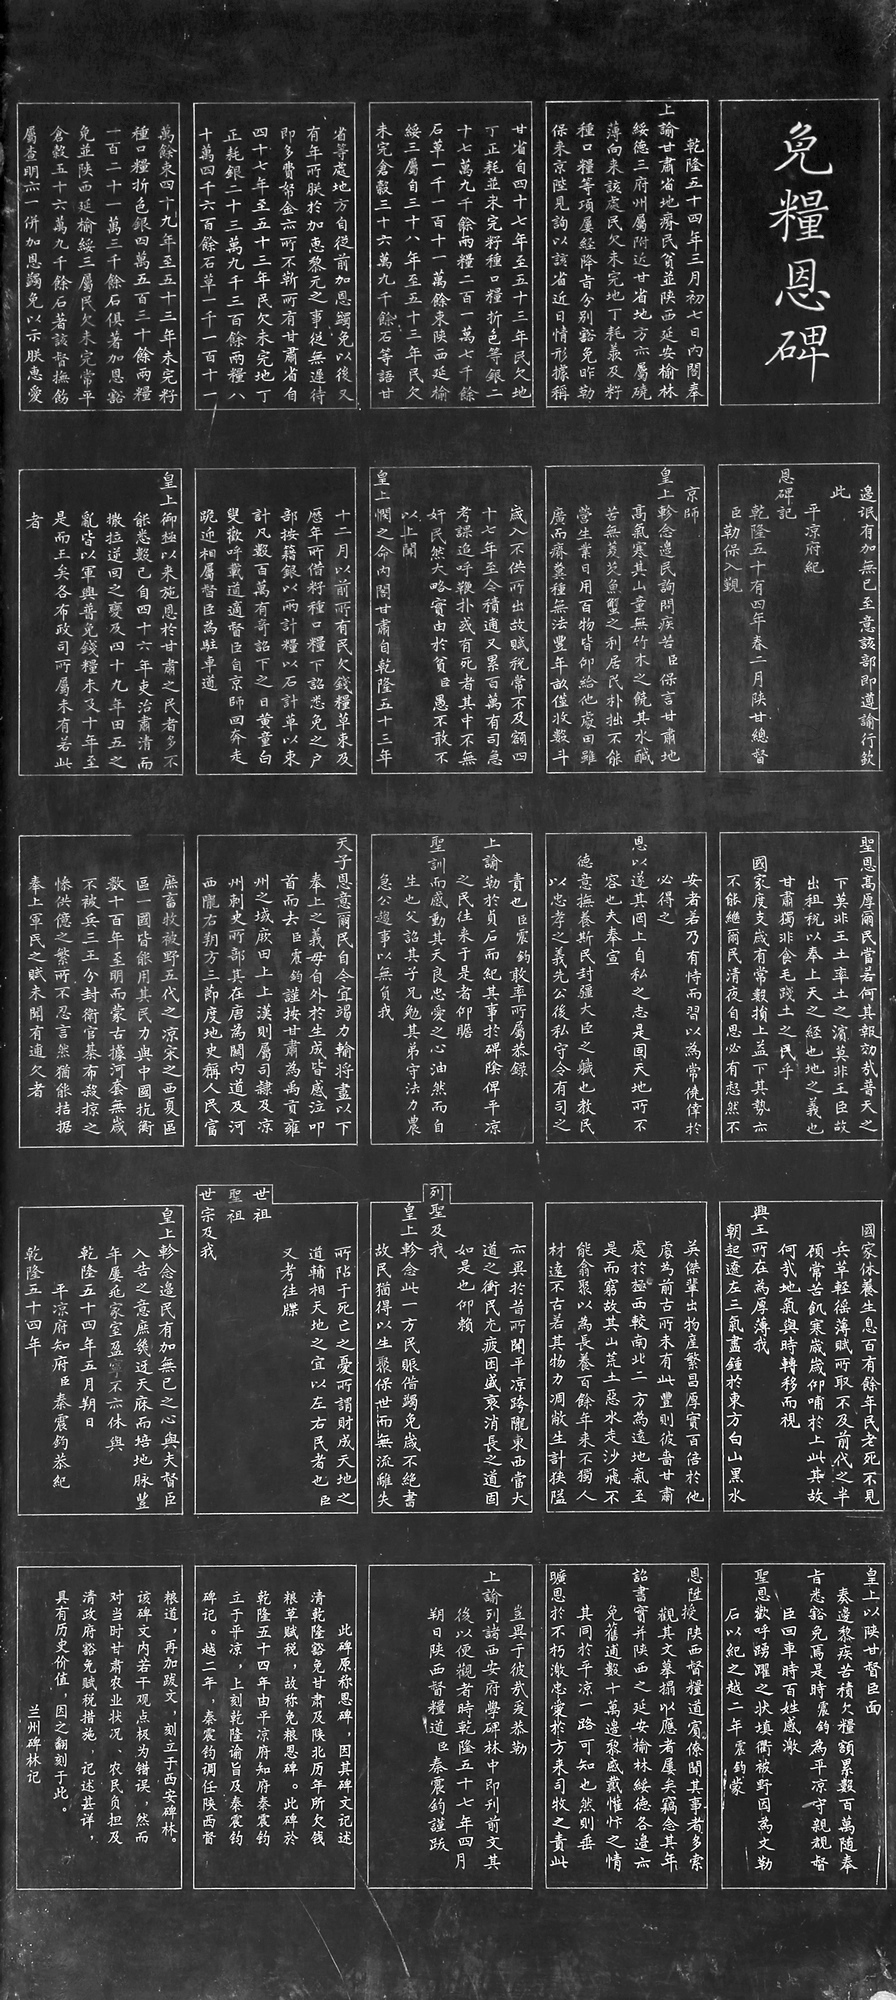 免糧恩碑
乾隆五十四年三月初七日內閣奉
上諭甘肅省地瘠民貧並陝西延安榆林
綏德三府州屬附近甘省地方亦屬磽
薄向來該處民欠未完地丁耗羨及籽
種口糧等項屢經降旨分別豁免昨勒
保來京陛見詢以該省近日情形據稱
甘省自四十七年至五十三年民欠地
丁正耗並未完籽種口糧折色等銀二
十七萬九千餘兩糧二百一萬七千餘
石草一千一百十一萬餘束陝西延榆
綏三屬自三十八年至五十三年民欠
未完倉穀三十六萬九千餘石等語甘
省等處地方自從前加恩蠲免以後又
有年所朕於加惠黎元之事從無遲待
即多費帑金亦所不靳所有甘肅省自
四十七年至五十三年民欠未完地丁
正耗銀二十三萬九千三百餘兩糧八
十萬四千六百餘石草一千一百十一
萬餘束四十九年至五十三年未完籽
種口糧折色銀四萬五百三十餘兩糧
一百二十一萬三千餘石俱著加恩豁
免並陝西延榆綏三屬民欠未完常平
倉穀五十六萬九千餘石著該督撫飭
屬查明亦一併加恩蠲免以示朕惠愛
邊氓有加無已至意該部即遵諭行欽
此
平凉府紀
恩碑記
乾隆五十有四年春二月陝甘總督
臣勒保入覲
京師
皇上軫念邊民詢問疾苦臣保言甘肅地
高氣寒其山童無竹木之饒其水鹹
苦無菱芡魚蟹之利居民朴拙不能
營生業日用百物皆仰給他處田雖
廣而瘠糞種無法豐年畝僅收數斗
歲入不供所出故賦稅常不及額四
十七年至今積逋又累百萬有司急
考課追呼鞭扑或有死者其中不無
奸民然大略實由於貧臣愚不敢不
以上聞
皇上憫之命內閣甘肅自乾隆五十三年
十二月以前所有民欠錢糧草束及
歷年所借籽種口糧下詔悉免之戶
部按籍銀以兩計糧以石計草以束
計凡數百萬有奇詔下之日黃童白
叟歡呼載道適督臣自京師回奔走
跪迎相屬督臣為駐車道
皇上御極以來施恩於甘肅之民者多不
能悉數已自四十六年吏治肅清而
撒拉逆回之變及四十九年田五之
亂皆以軍興普免錢糧未及十年至
是而三矣各布政司所屬未有若此
者
聖恩高厚爾民當若何其報効哉普天之
下莫非王土率土之濱莫非王臣故
出租稅以奉上天之經也地之義也
甘肅獨非食毛踐土之民乎
國家度支歲有常數損上益下其勢亦
不能繼爾民清夜自思必有惄然不
安者若乃有恃而習以為常僥倖於
必得之
恩以遂其罔上自私之志是固天地所不
容也夫奉宣
德意撫養斯民封疆大臣之職也教民
以忠孝之義先公後私守令有司之
責也臣震鈞敢率所屬恭錄
上諭勒於貞石而紀其事於碑陰俾平凉
之民往來于是者仰瞻
聖訓而感動其天良忠愛之心油然而自
生也父詔其子兄勉其弟守法力農
急公趨事以無負我
天子恩意爾民自今宜竭力輸將盡以下
奉上之義毋自外於生成皆感泣叩
首而去臣震鈞謹按甘肅為禹貢雍
州之域厥田上上漢則屬司隸及凉
州刺史所部其在唐為關內道及河
西隴右朔方三節度地史稱人民富
庶畜牧被野五代之凉宋之西夏區
區一國皆能用其民力與中國抗衡
數十百年至明而蒙古據河套無歲
不被兵三王分封衛官棊布殺掠之
慘供億之繁所不忍言然猶能拮据
奉上軍民之賦未聞有逋欠者
國家休養生息百有餘年民老死不見
兵革輕徭薄賦所取不及前代之半
碩常苦飢寒歲歲仰哺於上此其故
何哉地氣與時轉移而視
興王所在為厚薄我
朝起遼左三氣盡鍾於東方白山黑水
英傑輩出物產繁昌厚實百倍於他
處為前古所未有此豐則彼嗇甘肅
處於極西較南北二方為遠地氣至
是而窮故其山荒土惡水走沙飛不
能翕聚以為長養百餘年來不獨人
材遠不古若其物力凋敝生計狹隘
亦異於昔所聞平凉跨隴東西當大
道之衝民尤疲困盛衰消長之道固
如是也仰賴
列聖及我
皇上軫念此一方民賑借蠲免歲不絕書
故民猶得以生聚保世而無流離失
所阽于死亡之憂所謂財成天地之
道輔相天地之宜以左右民者也臣
又考往牒
世祖
聖祖
世宗及我
皇上軫念邊民有加無已之心與夫督臣
入告之意庶幾迓天庥而培地脉豐
年屢兆家室盈寧不亦休與
乾隆五十四年五月朔日
平凉府知府臣秦震鈞恭紀
乾隆五十四年
皇上以陝甘督臣面
奏邊黎疾苦積欠糧額累數百萬隨奉
旨悉豁免焉是時震鈞為平凉守親覩督
臣回車時百姓感激
聖恩歡呼踴躍之狀填衢被野因為文勒
石以紀之越二年震鈞蒙
恩陞授陝西督糧道賓僚聞其事者多索
觀其文摹搨以應者屢矣竊念其年
詔書實并陝西之延安榆林綏德各邊亦
免舊逋數十萬邊黎感戴懽忭之情
其同於平凉一路可知也然則垂
曠恩於不朽激忠愛於方來司牧之責此
豈異于彼哉爰恭勒
上諭列諸西安府學碑林中即刊前文其
後以便觀者時乾隆五十七年四月
朔日陝西督糧道臣秦震鈞謹跋
此碑原称恩碑，因其碑文记述
清乾隆豁免甘肃及陕北历年所欠钱
粮草赋税，故称免粮恩碑。此碑于
乾隆五十四年由平凉府知府秦震钧
立于平凉，上刻乾隆谕旨及秦震钧
碑记。越二年，秦震钧调任陕西督
粮道，再加跋文，刻立于西安碑林。
该碑文内若干观点极为错误，然而
对当时甘肃农业状况、农民负担及
清政府豁免赋税措施，记述甚详，
具有历史价值，因之翻刻于此。
兰州碑林记